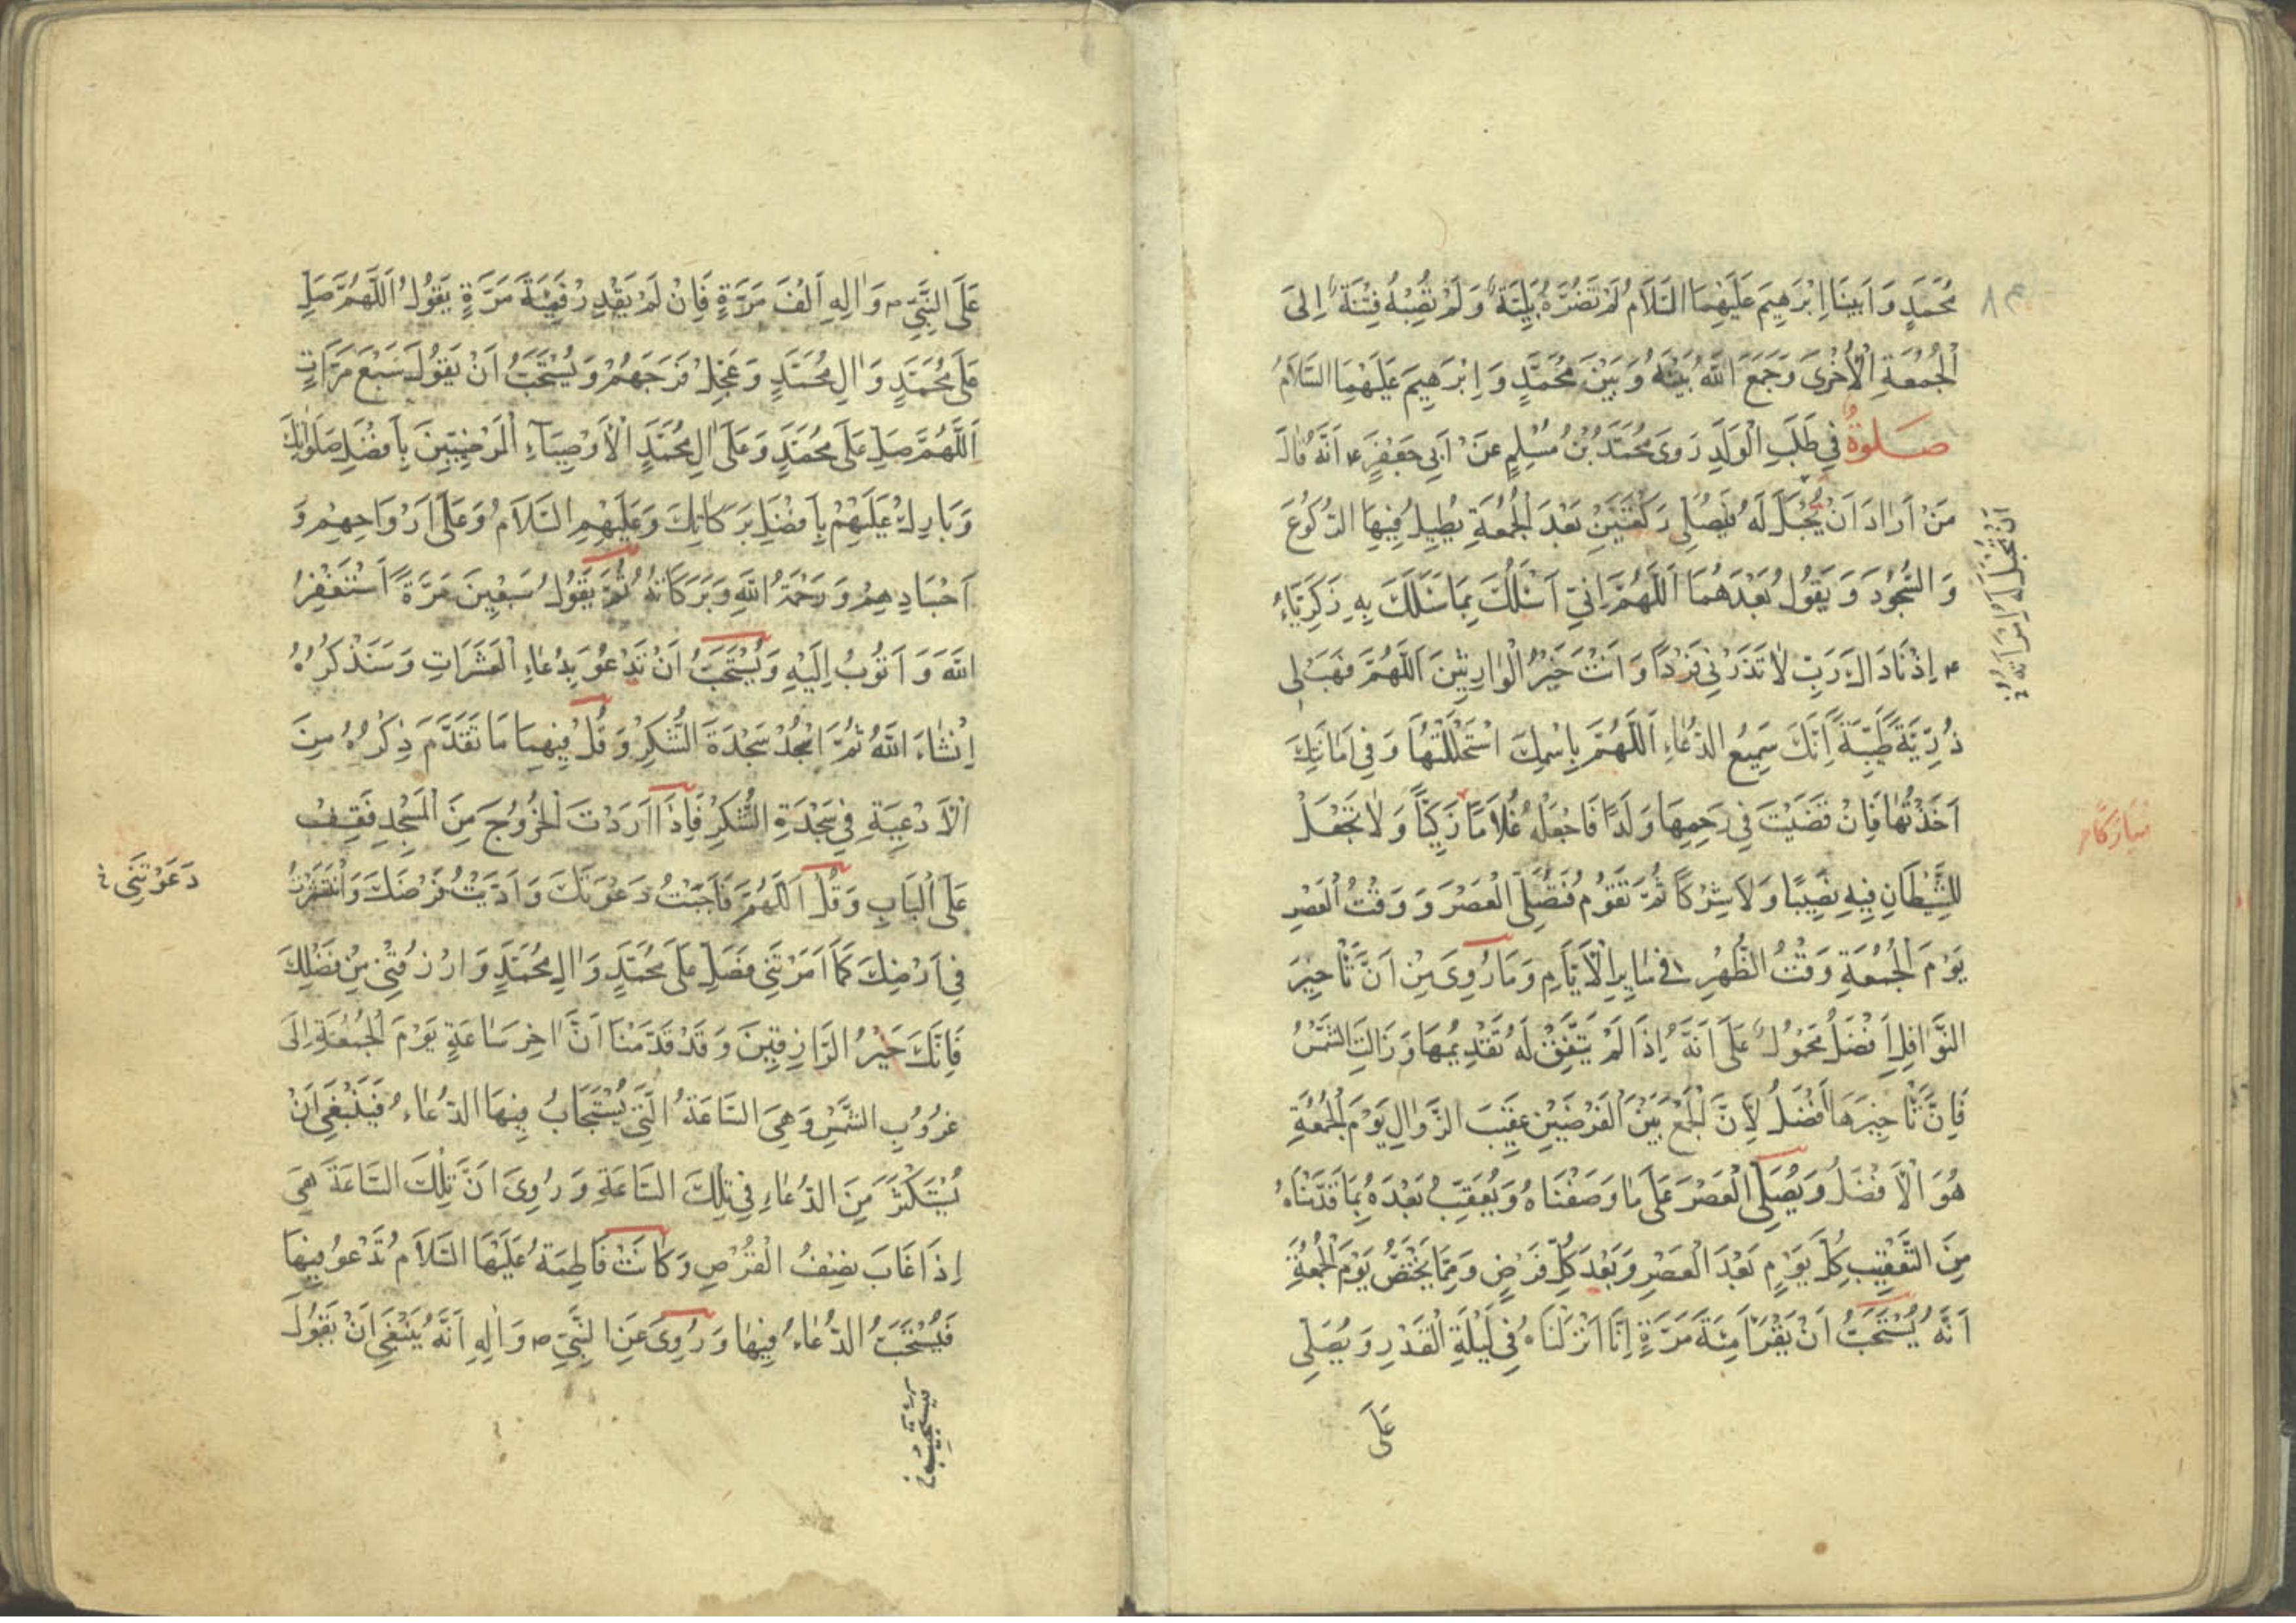 مُحَمَّدٍ وَاَبِينَا اِبْرٰهِيمَ عَلَيْهِمَا السَّلَامُ لَمْ تَضُرَّهُ بَلِيَّةٌ وَلَمْ تُصِبْهُ فِتْنَةٌ اِلَى
الْجُمُعَةِ الْاُخْرَى وَجَمَعَ اللّٰهُ بَيْنَهُ وَبَيْنَ مُحَمَّدٍ وَاِبْرٰهِيمَ عَلَيْهِمَا السَّلَامُ
صَلٰوةٌ فِي طَلَبِ الْوَلَدِ رَوَى مُحَمَّدُ بْنُ مُسْلِمٍ عَنْ اَبِي جَعْفَرٍ ع اَنَّهُ قَالَ
مَنْ اَرَادَ اَنْ يُحْبَلَ لَهُ فَلْيُصَلِّ رَكْعَتَيْنِ بَعْدَ الْجُمُعَةِ يُطِيلُ فِيهَا الرُّكُوعَ
وَالسُّجُودَ وَيَقُولُ بَعْدَهُمَا اَللّٰهُمَّ اِنِّي اَسْئَلُكَ بِمَا سَئَلَكَ بِهِ زَكَرِيَّاءُ
ع اِذْ نَادَاكَ رَبِّ لَا تَذَرْنِي فَرْدًا وَاَنْتَ خَيْرُ الْوَارِثِينَ اَللّٰهُمَّ فَهَبْ لِي
ذُرِّيَّةً طَيِّبَةً اِنَّكَ سَمِيعُ الدُّعَاءِ اَللّٰهُمَّ بِاسْمِكَ اسْتَحْلَلْتُهَا وَفِي اَمَانَتِكَ
اَخَذْتُهَا فَاِنْ قَضَيْتَ فِي رَحِمِهَا وَلَدًا فَاجْعَلْهُ غُلَامًا زَكِيًّا وَلَا تَجْعَلْ
لِلشَّيْطَانِ فِيهِ نَصِيبًا وَلَا شِرْكًا ثُمَّ تَقُومُ فَتُصَلِّي الْعَصْرَ وَوَقْتُ الْعَصْرِ
يَوْمَ الْجُمُعَةِ وَقْتُ الظُّهْرِ فِي سَايِرِ الْاَيَّامِ وَمَا رُوِيَ مِنْ اَنَّ تَأْخِيرَ
النَّوَافِلِ اَفْضَلُ مَحْمُولٌ عَلَى اَنَّهُ اِذَا لَمْ يَتَّفِقْ لَهُ تَقْدِيمُهَا وَزَالَتِ الشَّمْسُ
فَاِنَّ تَأْخِيرَهَا اَفْضَلُ لِاَنَّ الْجَمْعَ بَيْنَ الْفَرْضَيْنِ عَقِيبَ الزَّوَالِ يَوْمَ الْجُمُعَةِ
هُوَ الْاَفْضَلُ وَيُصَلِّي الْعَصْرَ عَلَى مَا وَصَفْنَاهُ وَيُعَقِّبُ بَعْدَهُ بِمَا قَدَّمْنَاهُ
مِنَ التَّعْقِيبِ كُلَّ يَوْمٍ بَعْدَ الْعَصْرِ وَبَعْدَ كُلِّ فَرْضٍ وَمِمَّا يَخْتَصُّ يَوْمَ الْجُمُعَةِ
اَنَّهُ يُسْتَحَبُّ اَنْ يَقْرَأَ مِئَةَ مَرَّةٍ اِنَّا اَنْزَلْنَاهُ فِي لَيْلَةِ الْقَدْرِ وَيُصَلِّي
عَلَى
مُبَارَكًا
عَلَى النَّبِيِّ ص وَاٰلِهِ اَلْفَ مَرَّةٍ فَاِنْ لَمْ يَقْدِرْ فَمِئَةَ مَرَّةٍ يَقُولُ اَللّٰهُمَّ صَلِّ
عَلَى مُحَمَّدٍ وَاٰلِ مُحَمَّدٍ وَعَجِّلْ فَرَجَهُمْ وَيُسْتَحَبُّ اَنْ يَقُولَ سَبْعَ مَرَّاتٍ
اَللّٰهُمَّ صَلِّ عَلَى مُحَمَّدٍ وَعَلَى اٰلِ مُحَمَّدٍ الْاَوْصِيَاءِ الْمَرْضِيِّينَ بِاَفْضَلِ صَلَوَاتِكَ
وَبَارِكْ عَلَيْهِمْ بِاَفْضَلِ بَرَكَاتِكَ وَعَلَيْهِمِ السَّلَامُ وَعَلَى اَرْوَاحِهِمْ وَ
اَجْسَادِهِمْ وَرَحْمَةُ اللّٰهِ وَبَرَكَاتُهُ ثُمَّ يَقُولُ سَبْعِينَ مَرَّةً اَسْتَغْفِرُ
اللّٰهَ وَاَتُوبُ اِلَيْهِ وَيُسْتَحَبُّ اَنْ تَدْعُوَ بِدُعَاءِ الْعَشَرَاتِ وَسَنَذْكُرُهُ
اِنْشَاءَ اللّٰهُ ثُمَّ اسْجُدْ سَجْدَةَ الشُّكْرِ وَقُلْ فِيهِمَا مَا تَقَدَّمَ ذِكْرُهُ مِنَ
الْاَدْعِيَةِ فِي سَجْدَةِ الشُّكْرِ فَاِذَا اَرَدْتَ الْخُرُوجَ مِنَ الْمَسْجِدِ فَقِفْ
عَلَى الْبَابِ وَقُلْ اَللّٰهُمَّ فَاَجَبْتُ دَعْوَتَكَ وَاَدَّيْتُ فَرْضَكَ وَانْتَشَرْتُ
فِي اَرْضِكَ كَمَا اَمَرْتَنِي فَصَلِّ عَلَى مُحَمَّدٍ وَاٰلِ مُحَمَّدٍ وَارْزُقْنِي مِنْ فَضْلِكَ
فَاِنَّكَ خَيْرُ الرَّازِقِينَ وَقَدْ قَدَّمْنَا اَنَّ اٰخِرَ سَاعَةٍ يَوْمَ الْجُمُعَةِ اِلَى
غُرُوبِ الشَّمْسِ وَهِيَ السَّاعَةُ الَّتِي يُسْتَجَابُ فِيهَا الدُّعَاءُ فَيَنْبَغِي اَنْ
يُسْتَكْثَرَ مِنَ الدُّعَاءِ فِي تِلْكَ السَّاعَةِ وَرُوِيَ اَنَّ تِلْكَ السَّاعَةَ هِيَ
اِذَا غَابَ نِصْفُ الْقُرْصِ وَكَانَتْ فَاطِمَةُ عَلَيْهَا السَّلَامُ تَدْعُو فِيهَا
فَيُسْتَحَبُّ الدُّعَاءُ فِيهَا وَرُوِيَ عَنِ النَّبِيِّ ص وَاٰلِهِ اَنَّهُ يَنْبَغِي اَنْ يَقُولَ
دَعَوْتَنِي خ